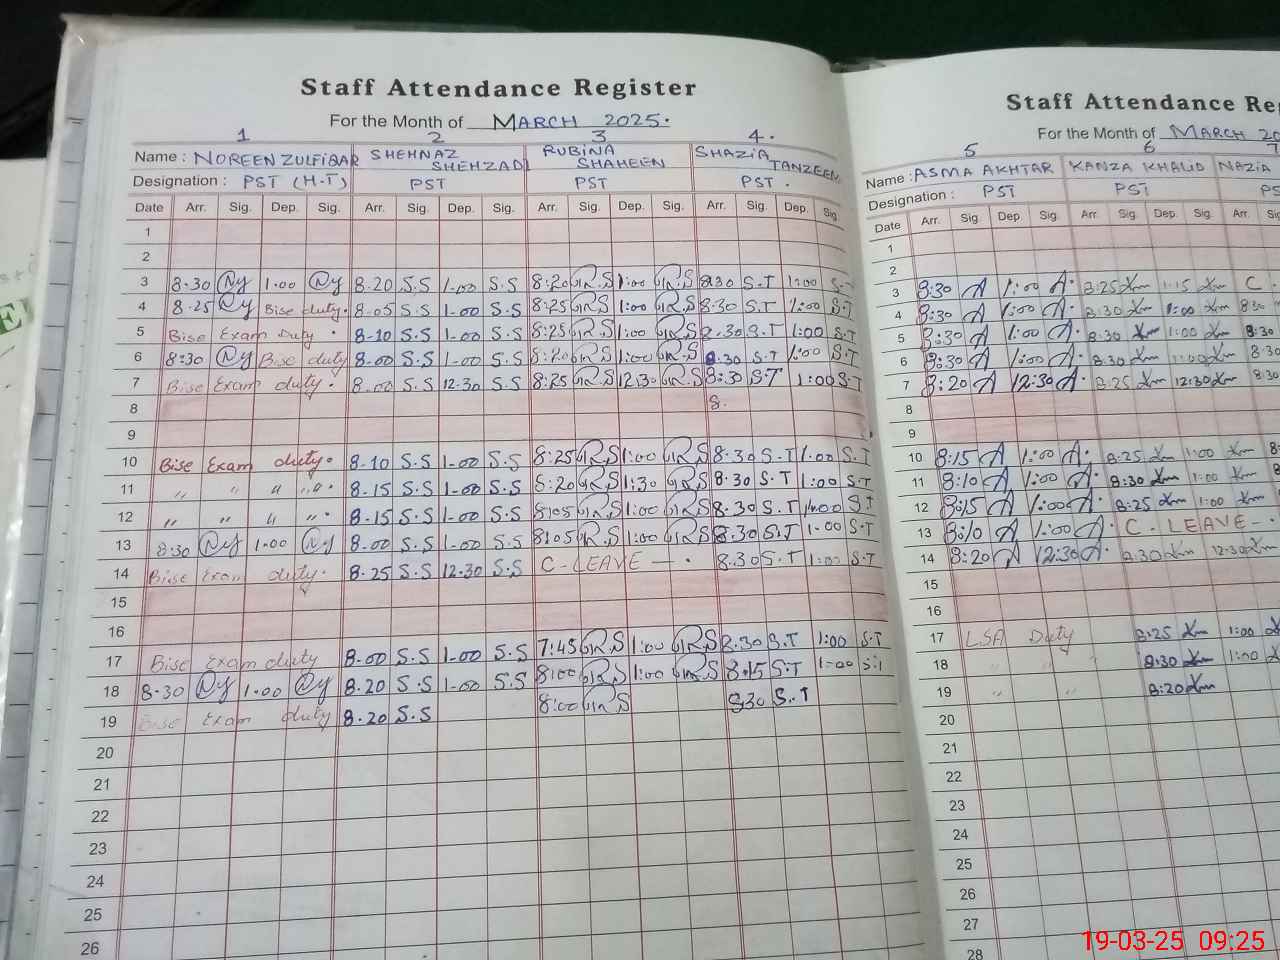 Staff Attendance Register
For the Month of MARCH 2025.
1 2 3 4.
Name : NOREEN ZULFIQAR SHEHNAZ SHEHZADI RUBINA SHAHEEN SHAZIA TANZEEM
Designation : PST (H-T) PST PST PST .
Date Arr. Sig. Dep. Sig. Arr. Sig. Dep. Sig. Arr. Sig. Dep. Sig. Arr. Sig. Dep. Sig.
1
2
3 8.30 1.00 8.20 S.S 1-00 S.S 8:20 R.S 1:00 R.S 8:30 S.T 1:00 S.T
4 8.25 Bise duty. 8.05 S.S 1-00 S.S 8:25 R.S 1:00 R.S 8.30 S.T 1:00 S.T
5 Bise Exam Duty . 8-10 S.S 1-00 S.S 8:25 R.S 1:00 R.S 8.30 S.T 1:00 S.T
6 8:30 Bise duty 8.00 S.S 1-00 S.S 8:20 R.S 1:00 R.S 8.30 S.T 1:00 S.T
7 Bise Exam duty. 8.00 S.S 12.30 S.S 8:25 R.S 12:30 R.S 8:30 S.T 1:00 S.T
8 8.
9
10 Bise Exam duty. 8-10 S.S 1-00 S.S 8:25 R.S 1:00 R.S 8.30 S.T 1.00 S.T
11 " " " " 8.15 S.S 1-00 S.S 8:20 R.S 1:30 R.S 8.30 S.T 1:00 S.T
12 " " " " 8.15 S.S 1-00 S.S 8:05 R.S 1:00 R.S 8.30 S.T 1:00 S.T
13 8:30 1.00 8.00 S.S 1-00 S.S 8:05 R.S 1:00 R.S 8.30 S.T 1-00 S.T
14 Bise Exam duty. 8.25 S.S 12.30 S.S C-LEAVE — . 8.30 S.T 1:00 S.T
15
16
17 Bise Exam duty 8.00 S.S 1-00 S.S 7:45 R.S 1:00 R.S 8.30 S.T 1:00 S.T
18 8-30 1.00 8.20 S.S 1-00 S.S 8:00 R.S 1:00 R.S 8.15 S.T 1:00 S.T
19 Bise Exam duty 8.20 S.S 8:00 R.S 8:30 S.T
20
21
22
23
24
25
26
Staff Attendance Re
For the Month of MARCH 20
5 6 7
Name : ASMA AKHTAR KANZA KHALID NAZIA
Designation : PST PST PS
Date Arr. Sig. Dep. Sig. Arr. Sig. Dep. Sig. Arr. Sig
1
2
3 8:30 A 1:00 A. 8:25 1:15 C -
4 8:30 A 1:00 A. 8:30 1:00 8:30
5 8:30 A 1:00 A. 8.30 1:00 8:30
6 8:30 A 1:00 A. 8.30 1:00 8:30
7 8:20 A 12:30 A. 8:25 12:30 8:30
8
9
10 8:15 A 1:00 A. 8:25 1:00 8-
11 8:10 A 1:00 A. 8:30 1:00 8:
12 8:15 A 1:00 A. 8:25 1:00
13 8:10 A 1:00 A. C - LEAVE - .
14 8:20 A 12:30 A. 8:30 12:30
15
16
17 LSA Duty 8:25 1:00
18 " " " 8:30 1:00
19 " " 8:20
20
21
22
23
24
25
26
27
28
19-03-25 09:25